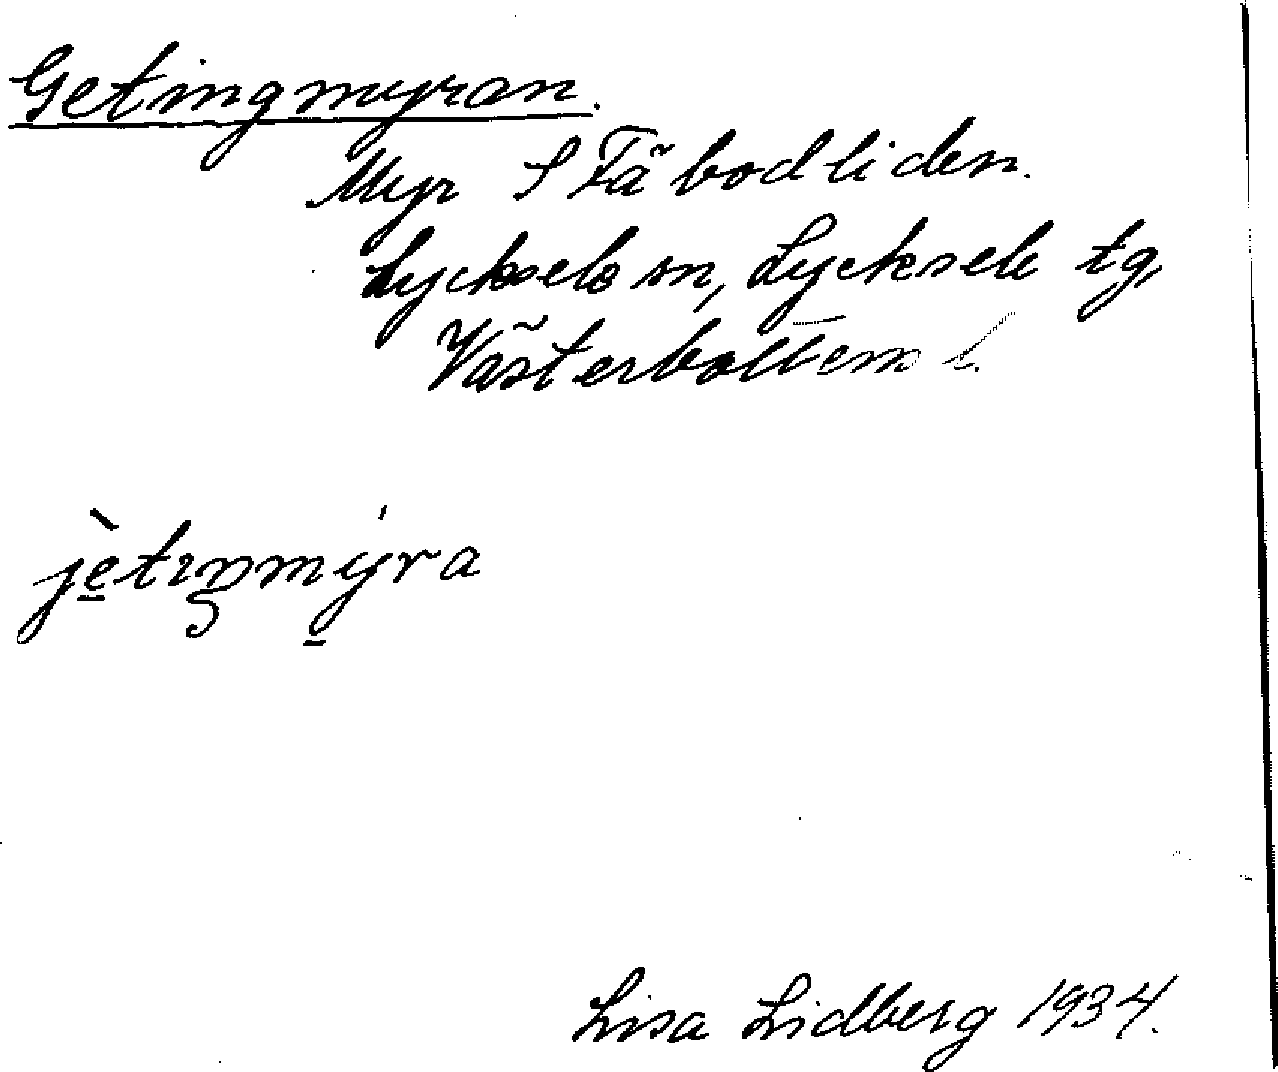 Getingmyran.
Myr S Fäbodliden.
Lycksele sn, Lycksele tg,
Västerbottens l.
jètıŋmy̍ra
Lisa Lidberg 1934.